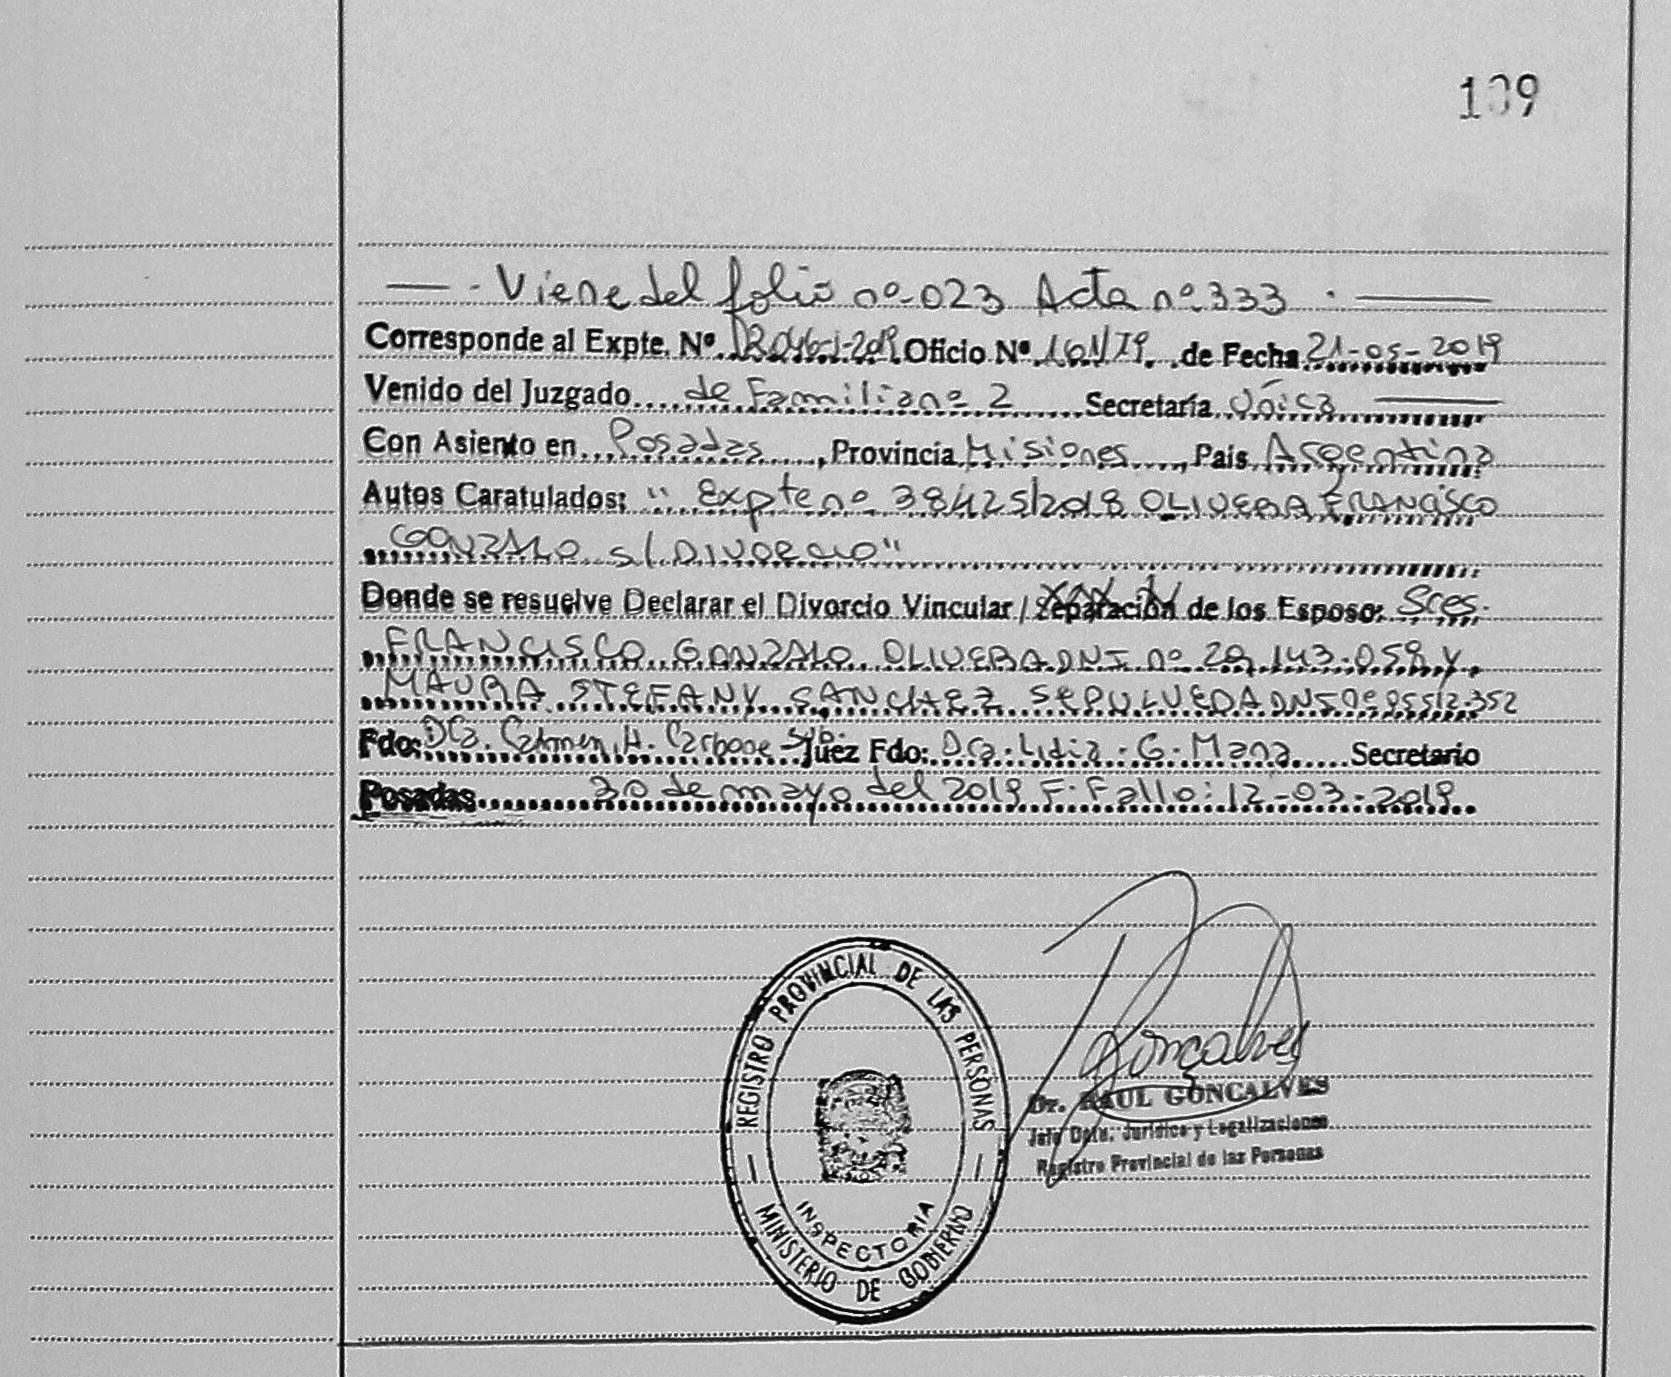 109
Viene del folio nº 023 Acta nº 333 .
Corresponde al Expte. Nº D2046-J-2019 Oficio Nº 161/19. de Fecha 21-05-2019
Venido del Juzgado de Familia nº 2 Secretaría Única
Con Asiento en Posadas, Provincia Misiones, Pais Argentina
Autos Caratulados: "Expte nº 38425/2018 OLIVERA FRANCISCO
GONZALO s/ DIVORCIO"
Donde se resuelve Declarar el Divorcio Vincular / Separación de los Esposo: Sres.
FRANCISCO GONZALO OLIVERA DNI nº 29.143.059 y
MAURA STEFANY SANCHEZ SEPULVEDA DNI nº 95512.352
Fdo: Dra. Carmen H. Carbone Sub. Juez Fdo: Dra. Lidia G. Mana Secretario
Posadas 30 de mayo del 2019 F. Fallo: 12-03-2019
REGISTRO PROVINCIAL DE LAS PERSONAS
INSPECTORIA
MINISTERIO DE GOBIERNO
Gonçalves
Dr. RAUL GONCALVES
Jefe Dpto. Jurídico y Legalizaciones
Registro Provincial de las Personas